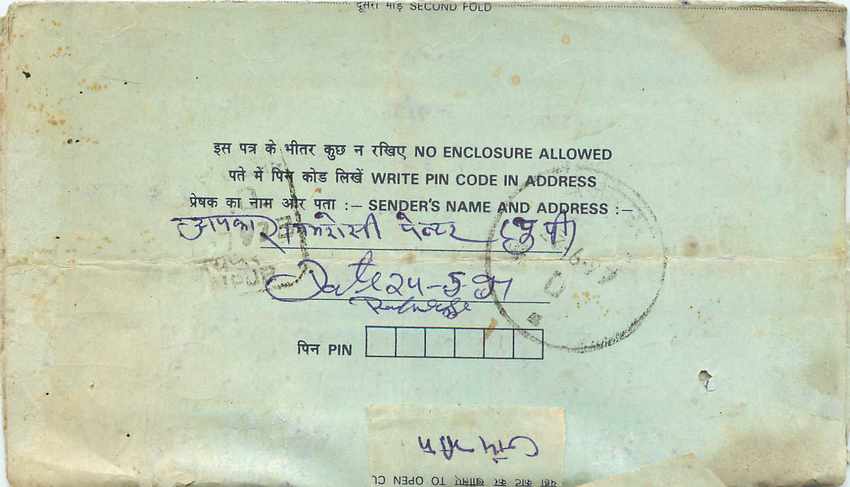 दूसरा मोड़ SECOND FOLD
इस पत्र के भीतर कुछ न रखिए NO ENCLOSURE ALLOWED
पते में पिन कोड लिखें WRITE PIN CODE IN ADDRESS
प्रेषक का नाम और पता :— SENDER'S NAME AND ADDRESS :—
आपका पेन्टर (यू पी)
Date 24-5-97
पिन PIN
TO OPEN